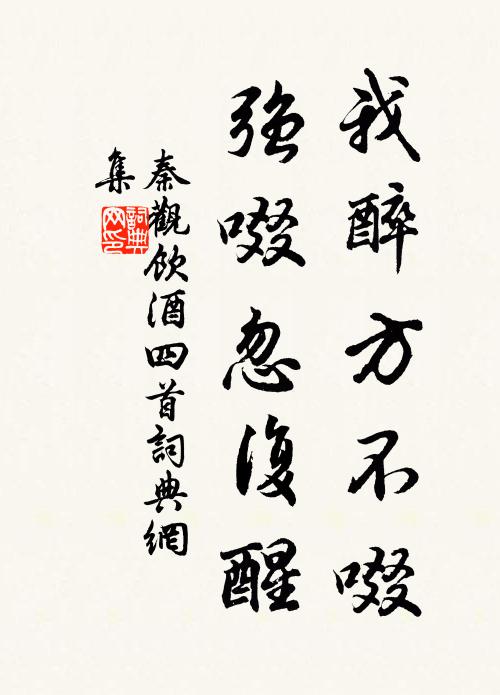 我醉方不啜
強啜忽復醒
秦觀飲酒四首詞典網
集
詞典
网印